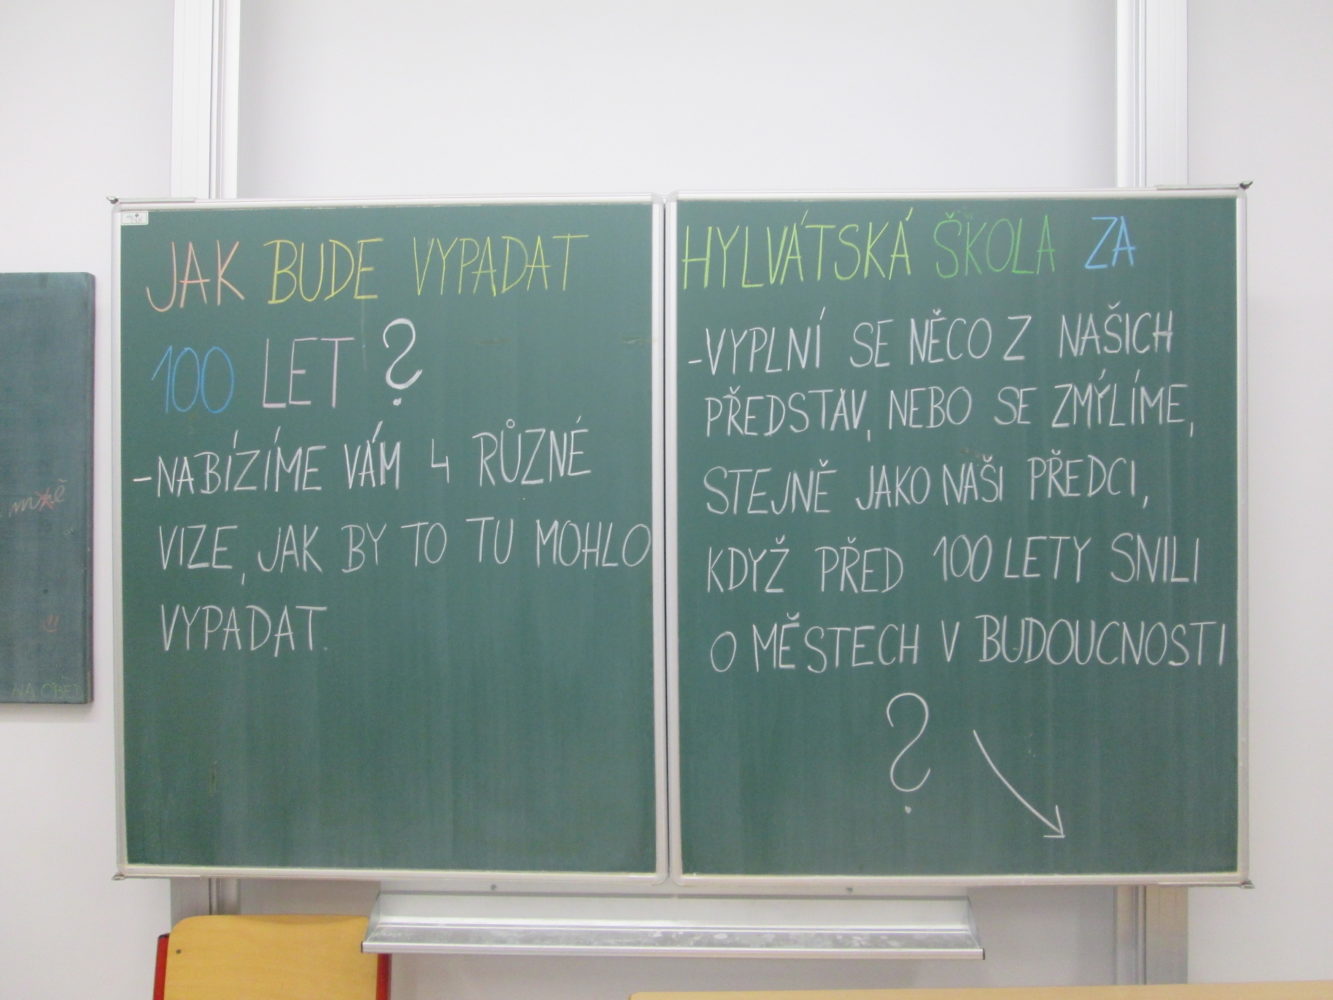 JAK BUDE VYPADAT HYLVÁTSKÁ ŠKOLA ZA
100 LET ?
-NABÍZÍME VÁM 4 RŮZNÉ
VIZE, JAK BY TO TU MOHLO
VYPADAT.
-VYPLNÍ SE NĚCO Z NAŠICH
PŘEDSTAV, NEBO SE ZMÝLÍME,
STEJNĚ JAKO NAŠI PŘEDCI,
KDYŽ PŘED 100 LETY SNILI
O MĚSTECH V BUDOUCNOSTI
?